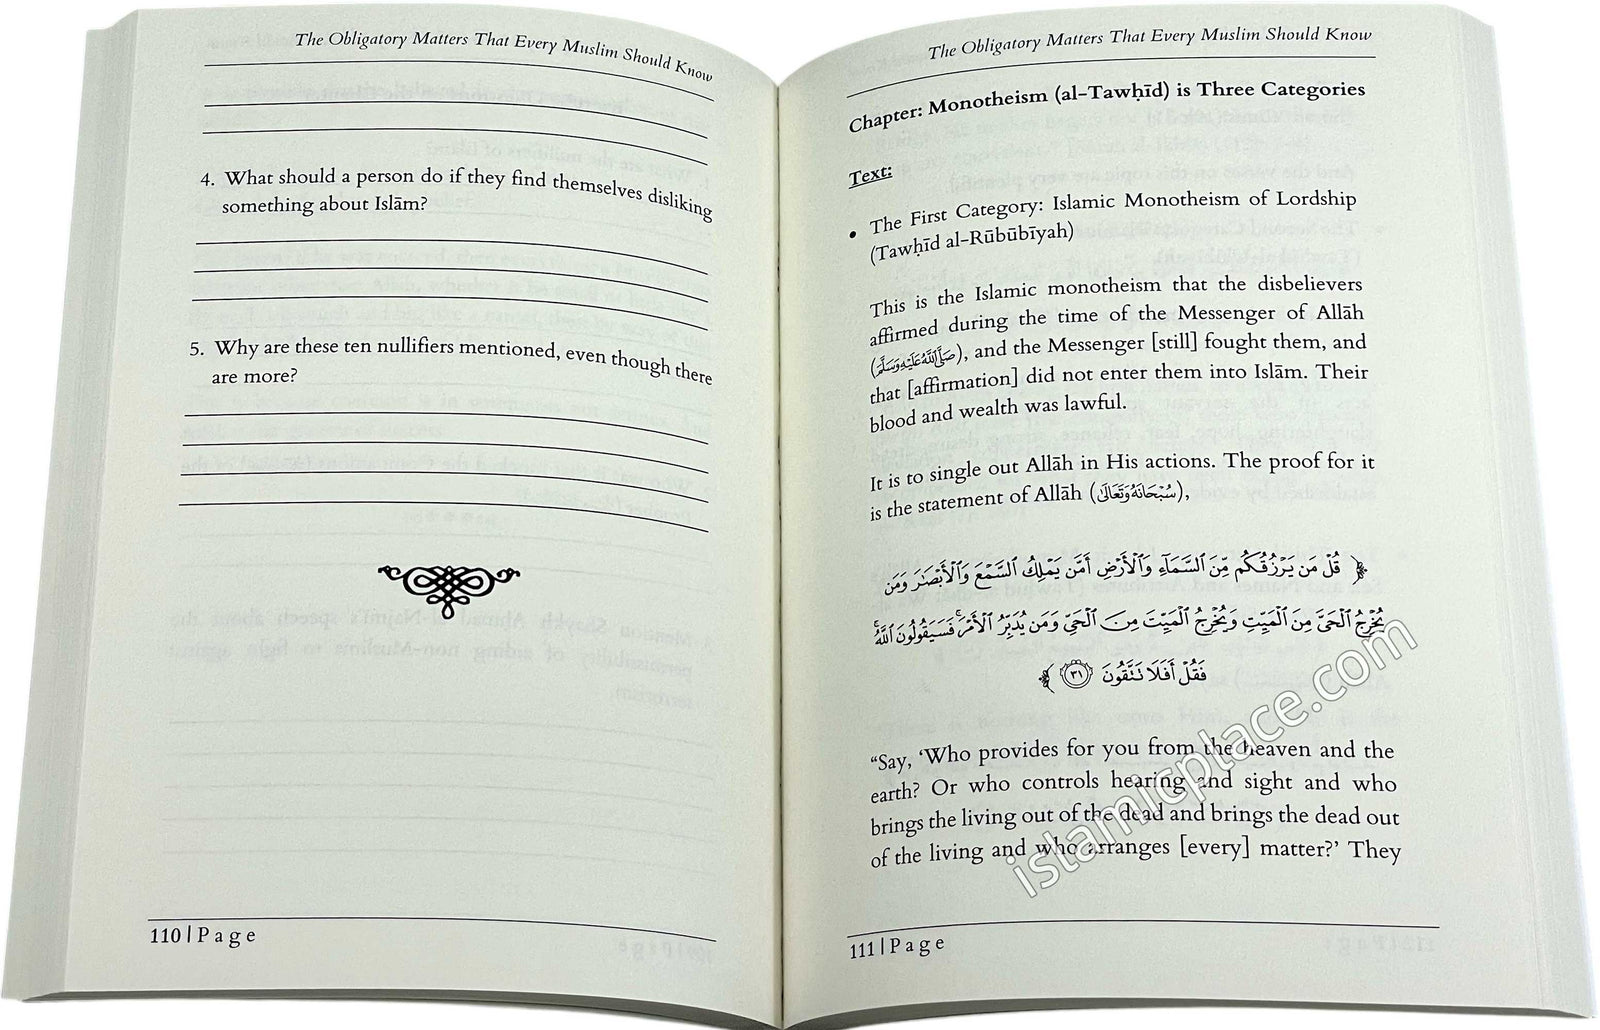 The Obligatory Matters That Every Muslim Should Know
4. What should a person do if they find themselves disliking
something about Islām?
5. Why are these ten nullifiers mentioned, even though there
are more?
110 | P a g e
The Obligatory Matters That Every Muslim Should Know
Chapter: Monotheism (al-Tawḥīd) is Three Categories
Text:
• The First Category: Islamic Monotheism of Lordship
(Tawḥīd al-Rūbūbīyah)
This is the Islamic monotheism that the disbelievers
affirmed during the time of the Messenger of Allāh
(صَلَّى اللَّهُ عَلَيْهِ وَسَلَّمَ), and the Messenger [still] fought them, and
that [affirmation] did not enter them into Islām. Their
blood and wealth was lawful.
It is to single out Allāh in His actions. The proof for it
is the statement of Allāh (سُبْحَانَهُ وَتَعَالَىٰ),
﴿ قُلْ مَن يَرْزُقُكُم مِّنَ ٱلسَّمَآءِ وَٱلْأَرْضِ أَمَّن يَمْلِكُ ٱلسَّمْعَ وَٱلْأَبْصَـٰرَ وَمَن
يُخْرِجُ ٱلْحَىَّ مِنَ ٱلْمَيِّتِ وَيُخْرِجُ ٱلْمَيِّتَ مِنَ ٱلْحَىِّ وَمَن يُدَبِّرُ ٱلْأَمْرَ ۚ فَسَيَقُولُونَ ٱللَّهُ ۚ
فَقُلْ أَفَلَا تَتَّقُونَ ٣١ ﴾
“Say, ‘Who provides for you from the heaven and the
earth? Or who controls hearing and sight and who
brings the living out of the dead and brings the dead out
of the living and who arranges [every] matter?’ They
111 | P a g e
islamicplace.com